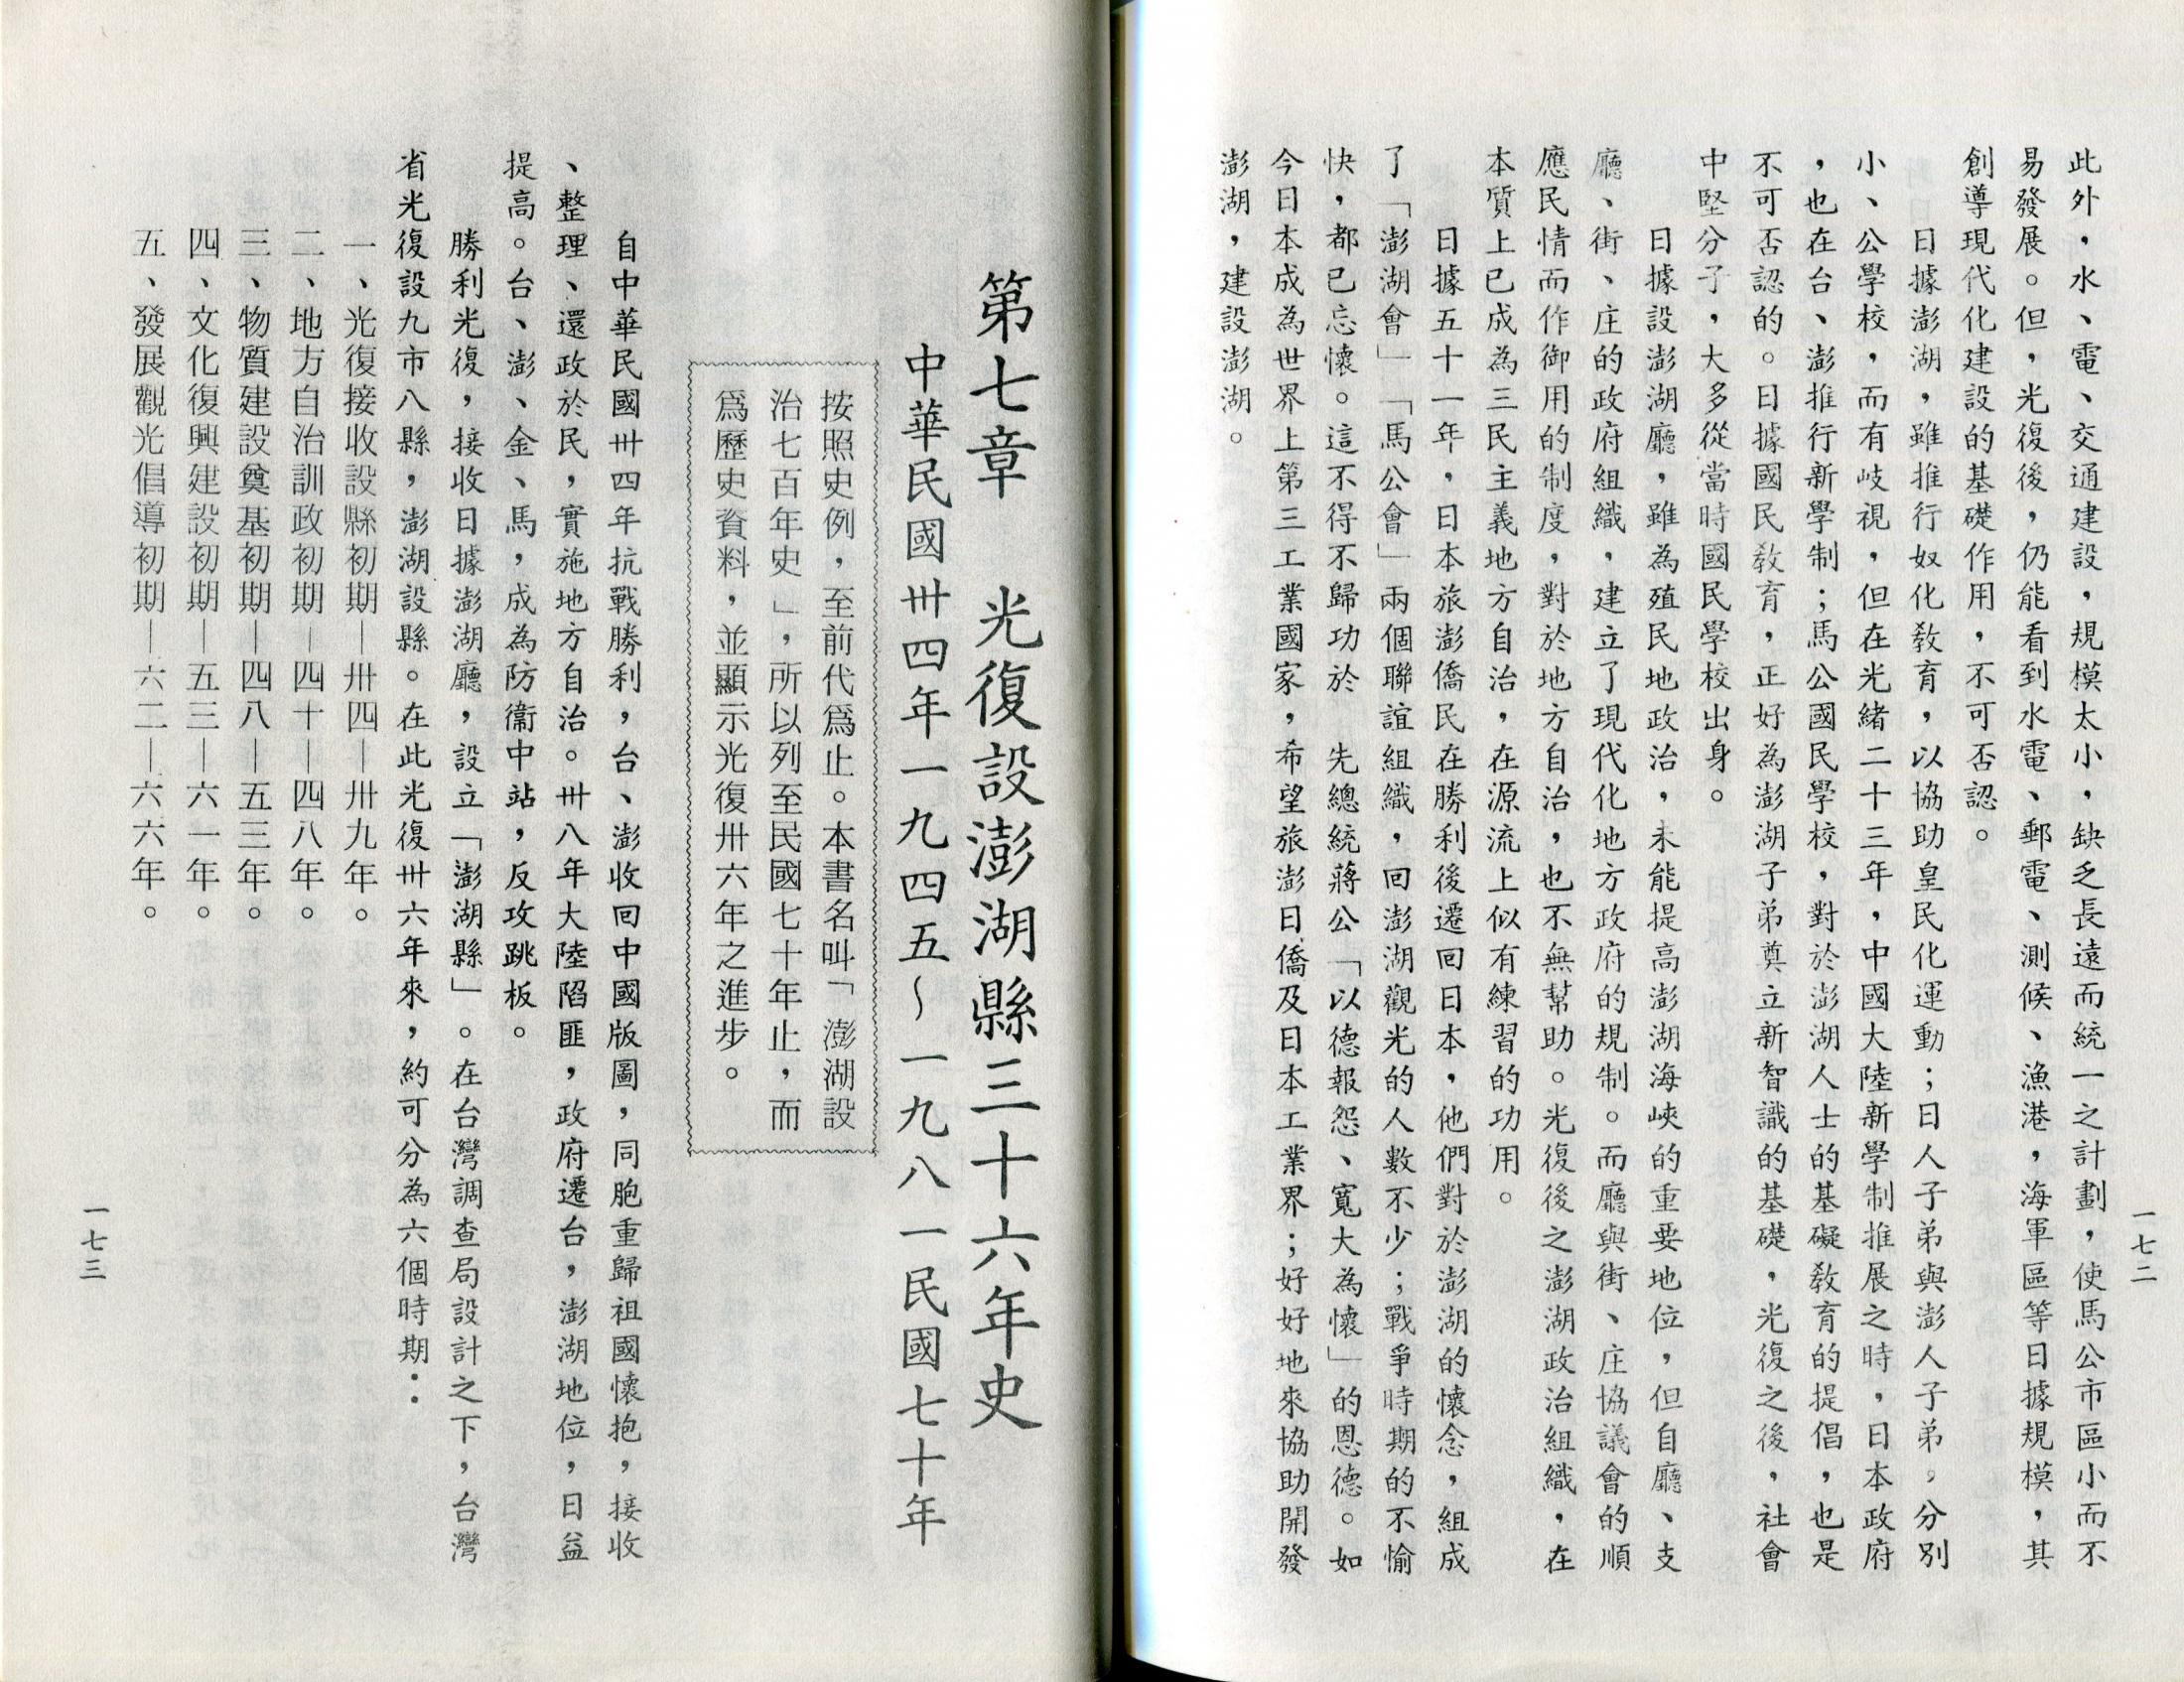 此外，水、電、交通建設，規模太小，缺乏長遠而統一之計劃，使馬公市區小而不
易發展。但，光復後，仍能看到水電、郵電、測候、漁港，海軍區等日據規模，其
創導現代化建設的基礎作用，不可否認。
日據澎湖，雖推行奴化教育，以協助皇民化運動；日人子弟與澎人子弟，分別
小、公學校，而有歧視，但在光緒二十三年，中國大陸新學制推展之時，日本政府
，也在台、澎推行新學制；馬公國民學校，對於澎湖人士的基礙教育的提倡，也是
不可否認的。日據國民教育，正好為澎湖子弟奠立新智識的基礎，光復之後，社會
中堅分子，大多從當時國民學校出身。
日據設澎湖廳，雖為殖民地政治，未能提高澎湖海峽的重要地位，但自廳、支
廳、街、庄的政府組織，建立了現代化地方政府的規制。而廳與街、庄協議會的順
應民情而作御用的制度，對於地方自治，也不無幫助。光復後之澎湖政治組織，在
本質上已成為三民主義地方自治，在源流上似有練習的功用。
日據五十一年，日本旅澎僑民在勝利後遷回日本，他們對於澎湖的懷念，組成
了「澎湖會」「馬公會」兩個聯誼組織，回澎湖觀光的人數不少；戰爭時期的不愉
快，都已忘懷。這不得不歸功於　先總統蔣公「以德報怨、寬大為懷」的恩德。如
今日本成為世界上第三工業國家，希望旅澎日僑及日本工業界；好好地來協助開發
澎湖，建設澎湖。
一七二
第七章　光復設澎湖縣三十六年史
中華民國卅四年一九四五～一九八一民國七十年
按照史例，至前代爲止。本書名叫「澎湖設
治七百年史」，所以列至民國七十年止，而
爲歷史資料，並顯示光復卅六年之進步。
自中華民國卅四年抗戰勝利，台、澎收回中國版圖，同胞重歸祖國懷抱，接收
、整理、還政於民，實施地方自治。卅八年大陸陷匪，政府遷台，澎湖地位，日益
提高。台、澎、金、馬，成為防衞中站，反攻跳板。
勝利光復，接收日據澎湖廳，設立「澎湖縣」。在台灣調查局設計之下，台灣
省光復設九市八縣，澎湖設縣。在此光復卅六年來，約可分為六個時期：
一、光復接收設縣初期—卅四—卅九年。
二、地方自治訓政初期—四十—四八年。
三、物質建設奠基初期—四八—五三年。
四、文化復興建設初期—五三—六一年。
五、發展觀光倡導初期—六二—六六年。
一七三